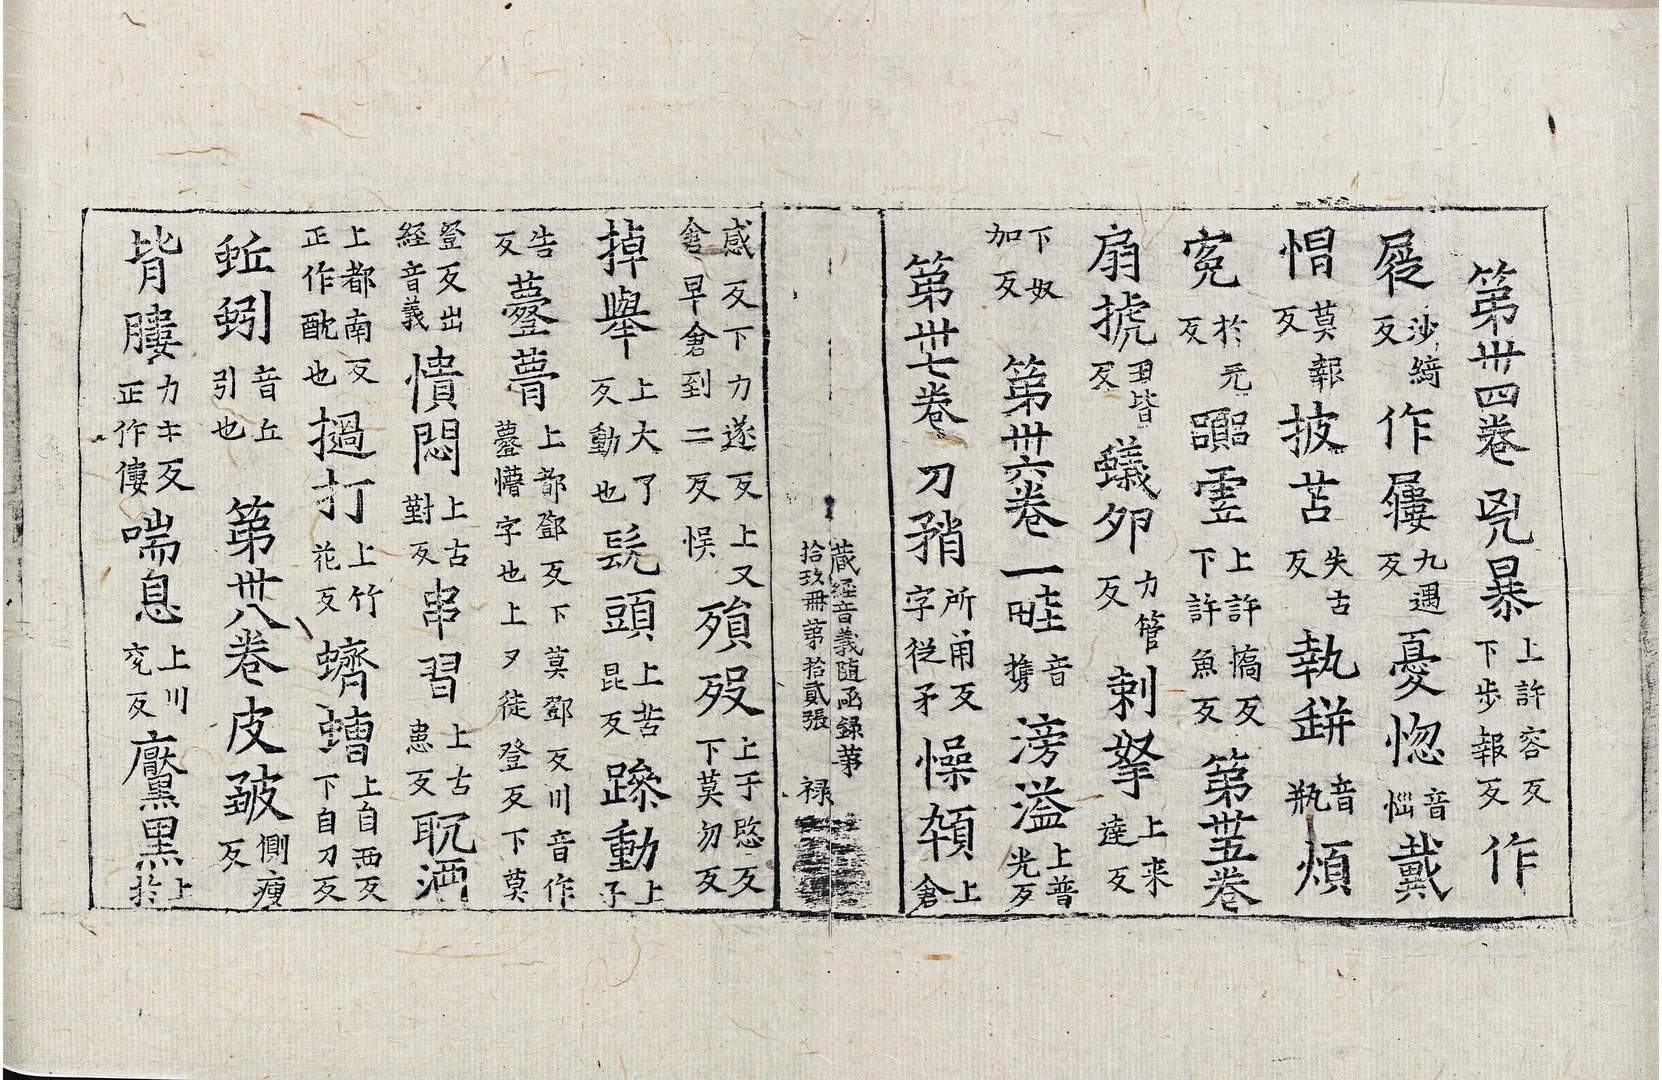 第卅四卷 兇暴上許容反下步報反 作
屣沙綺反 作屨九遇反 憂惚音惱 戴
帽莫報反 披苫失古反 執缾音瓶 煩
寃於元反 嚚虛上許憍反下許魚反 第卅五卷
扇搋丑皆反 蟻夘力管反 剌拏上来達反
下奴加反 第卅六卷 一畦音攜 滂溢上普光反
第卅七卷 刀矟所甪反字從矛 懆頛上倉
藏經音義随函録第拾玖冊 第拾貳張 禄
感反下力遂反上又倉早倉到二反悮 殞歿上于愍反下莫勿反
掉舉上大了反動也 髡頭上苦昆反 躁動上子
告反 䒢瞢上都鄧反下莫鄧反川音作䒢懵字也上又徒登反下莫
登反出經音義 憒悶上古對反 串習上古患反 耽洒
上都南反正作酖也 撾打上竹花反 蠐螬上自西反下自刀反
蚯蚓音丘引也 第卅八卷 皮皺側瘦反
背膢力主反正作僂 喘息上川兖反 黶黑上於